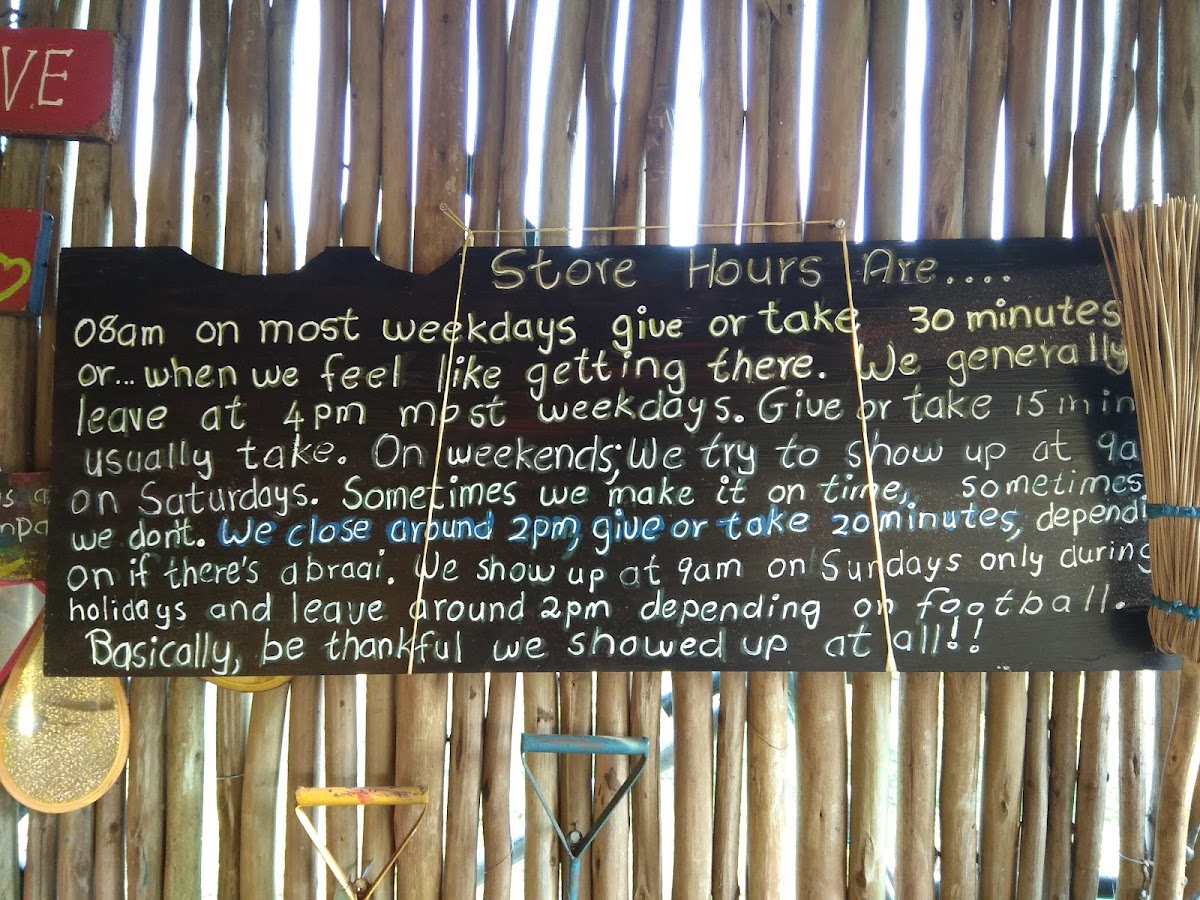 VE
Store Hours Are....
08am on most weekdays give or take 30 minutes
or... when we feel like getting there. We generally
leave at 4pm most weekdays. Give or take 15 min
usually take. On weekends; We try to show up at 9a
on Saturdays. Sometimes we make it on time, sometimes
we don't. We close around 2pm, give or take 20 minutes, dependi
on if there's a braai. We show up at 9am on Sundays only during
holidays and leave around 2pm depending on football.
Basically, be thankful we showed up at all!!